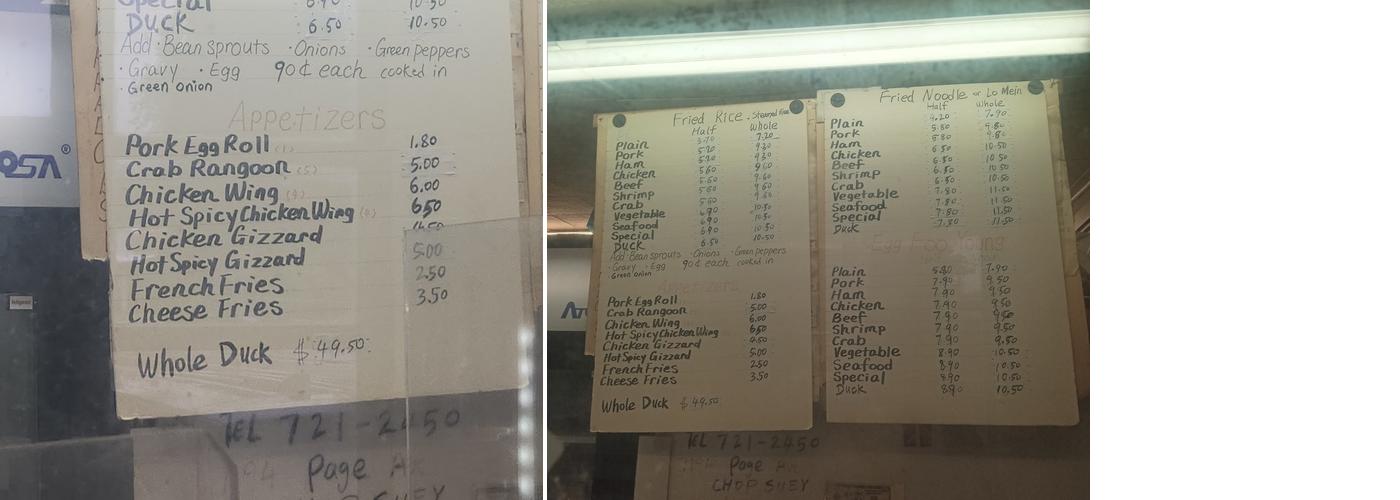 Special 6.90 10.50
Duck 6.50 10.50
Add · Bean sprouts · Onions · Green peppers
· Gravy · Egg 90¢ each cooked in
· Green onion
Appetizers
Pork Egg Roll (1) 1.80
Crab Rangoon (5) 5.00
Chicken Wing (4) 6.00
Hot Spicy Chicken Wing (4) 6.50
Chicken Gizzard 4.50
Hot Spicy Gizzard 5.00
French Fries 2.50
Cheese Fries 3.50
Whole Duck $49.50
TEL 721-2450
Page
CHOP SUEY
Fried Rice
Half Whole
Plain 7.20
Pork 5.20 9.20
Ham 5.20 9.20
Chicken 5.60 9.60
Beef 5.60 9.60
Shrimp 5.60 9.60
Crab 5.60
Vegetable 6.90 10.50
Seafood 6.90 10.50
Special 6.90 10.50
Duck 6.50 10.50
Add · Bean sprouts · Onions · Green peppers
· Gravy · Egg 90¢ each cooked in
· Green onion
Appetizers
Pork Egg Roll 1.80
Crab Rangoon 5.00
Chicken Wing 6.00
Hot Spicy Chicken Wing 6.50
Chicken Gizzard 4.50
Hot Spicy Gizzard 5.00
French Fries 2.50
Cheese Fries 3.50
Whole Duck $49.50
Fried Noodle or Lo Mein
Half Whole
Plain 4.20 7.90
Pork 5.80 9.80
Ham 5.80 9.80
Chicken 6.50 10.50
Beef 6.50 10.50
Shrimp 6.50 10.50
Crab 6.50 10.50
Vegetable 7.80 11.50
Seafood 7.80 11.50
Special 7.80 11.50
Duck 7.80 11.50
Egg Foo Young
Plain 5.80 7.90
Pork 7.90 9.50
Ham 7.90 9.50
Chicken 7.90 9.50
Beef 7.90 9.50
Shrimp 7.90 9.50
Crab 7.90 9.50
Vegetable 8.90 10.50
Seafood 8.90 10.50
Special 8.90 10.50
Duck 8.90 10.50
TEL 721-2450
Page
CHOP SUEY